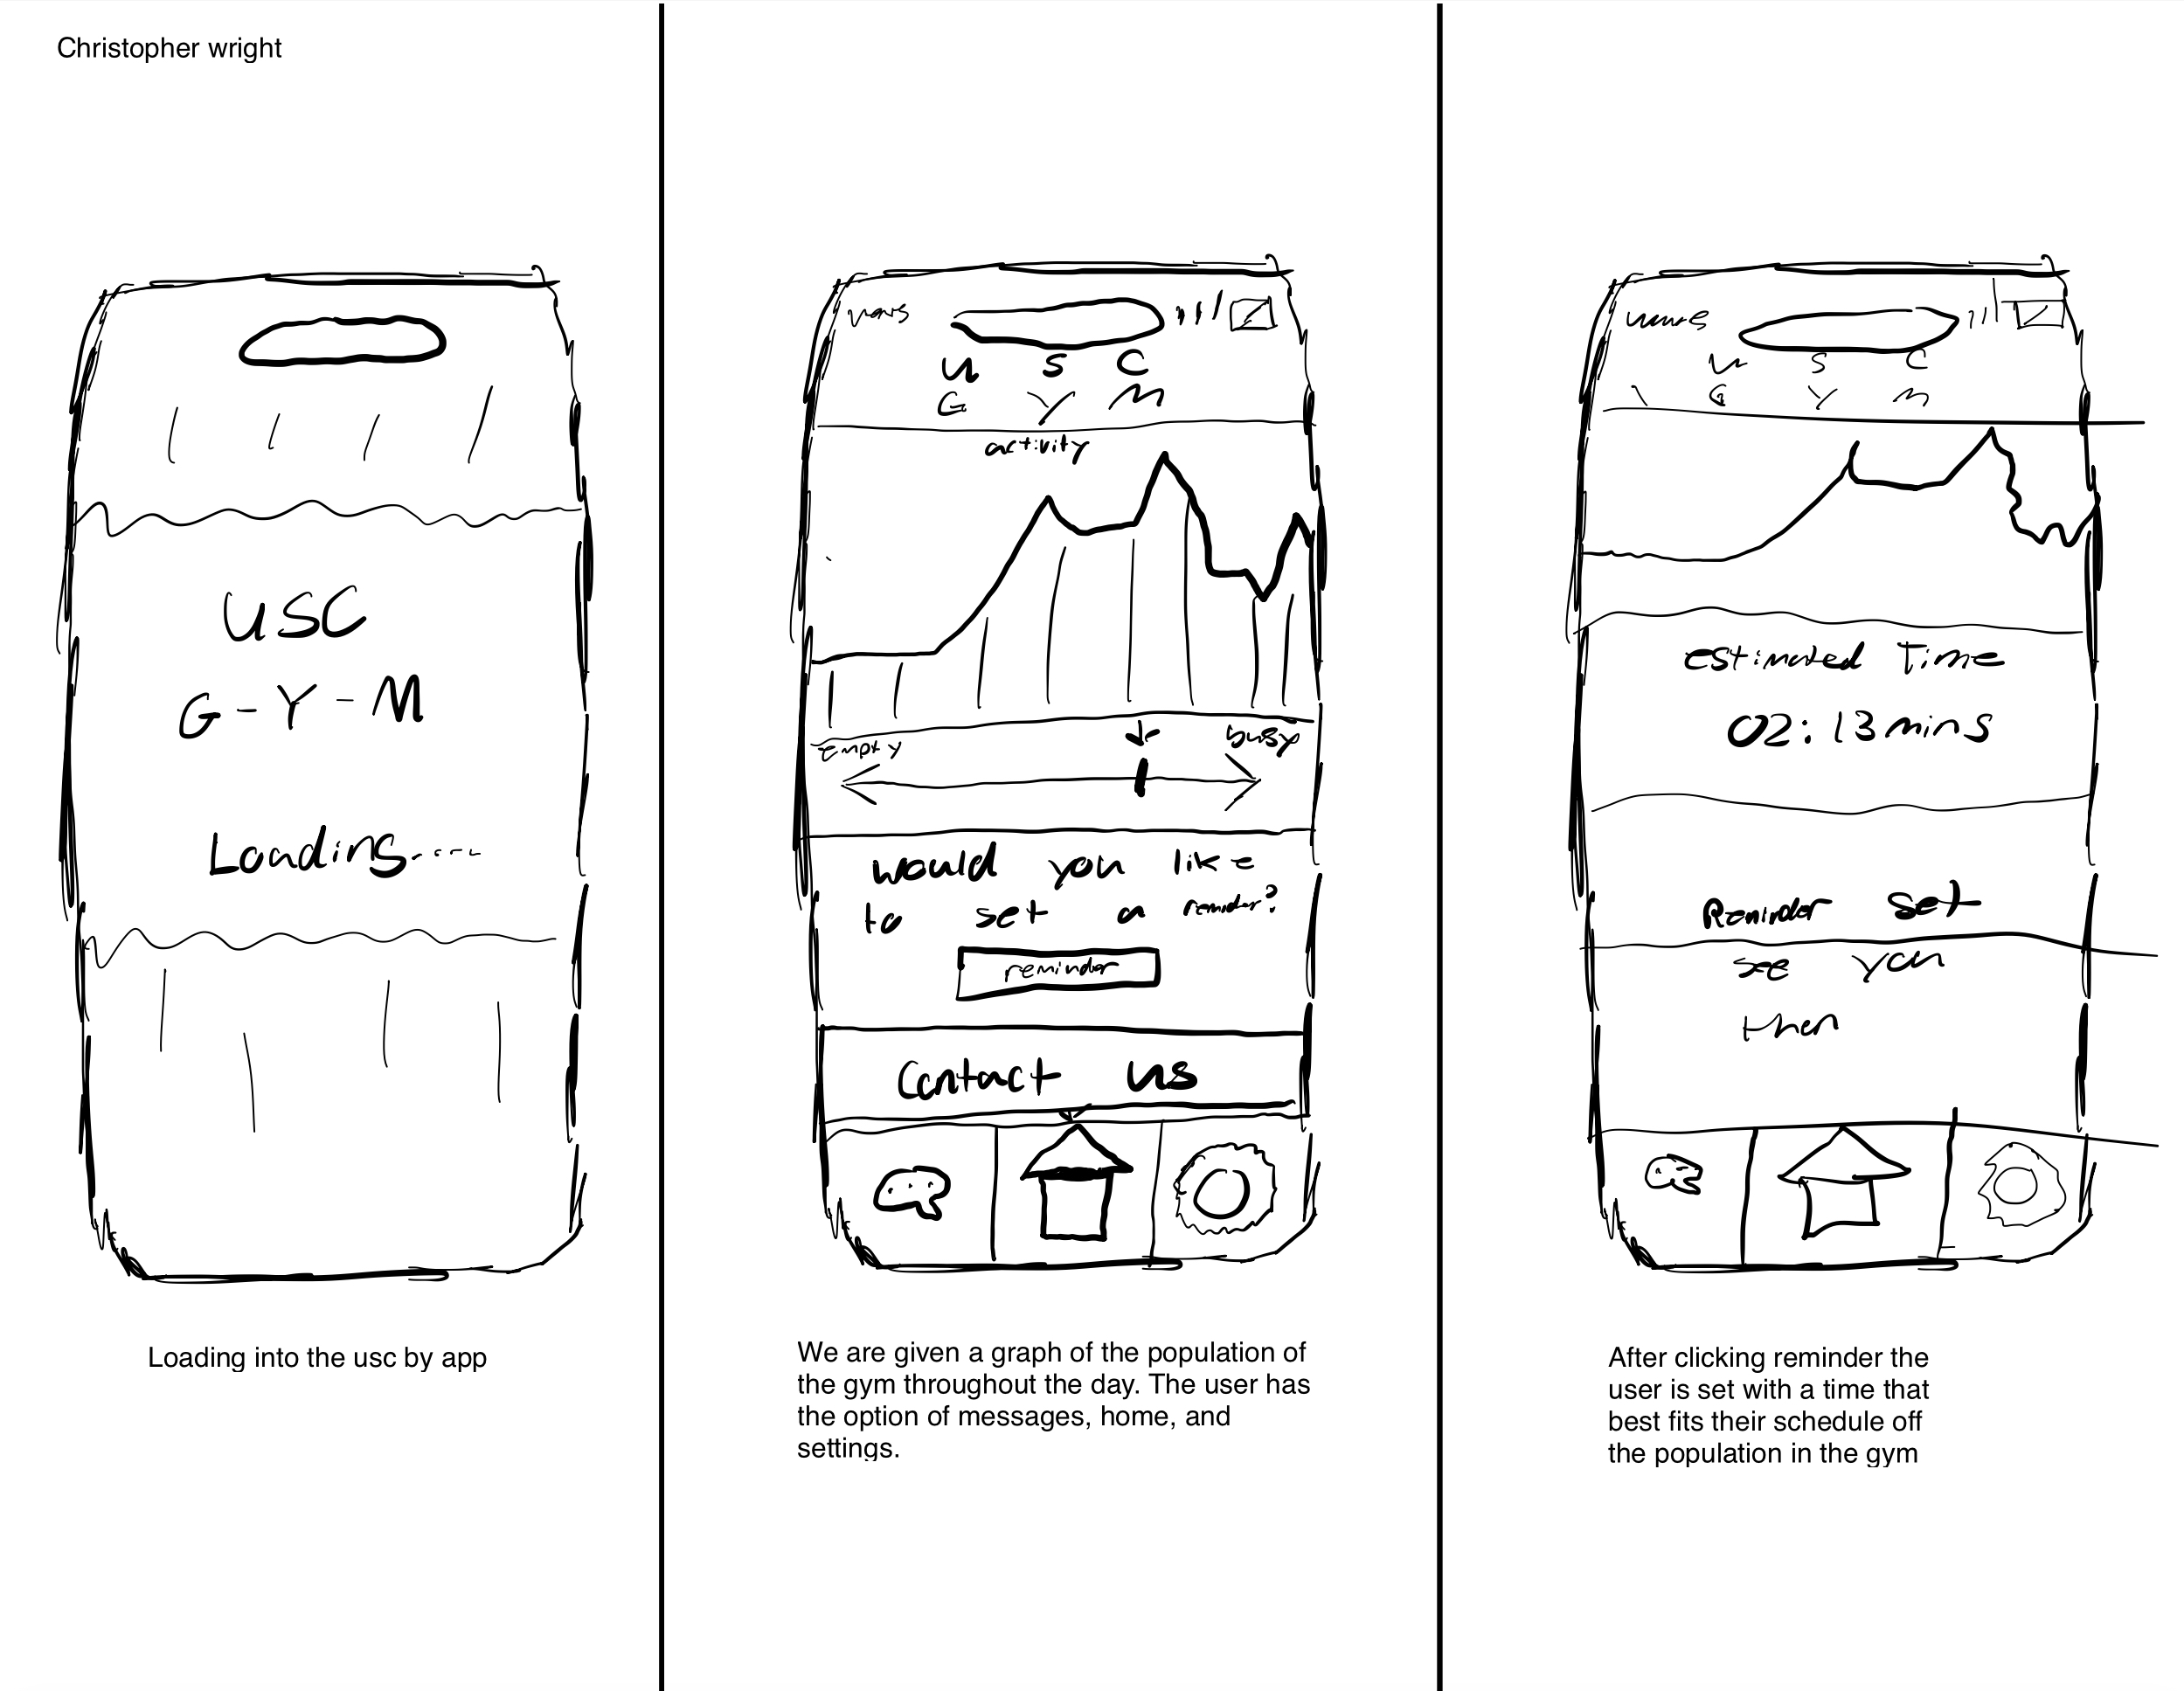 Christopher wright
USC
G-Y-M
Loading....
Loading into the usc by app
U S C
G Y M
activity
empty
busy
would you like
to set a reminder?
reminder
Contact us
We are given a graph of the population of
the gym throughout the day. The user has
the option of messages, home, and
settings.
U S C
G Y M
estimated Time
02:13 mins
Reminder set
see you
then
After clicking reminder the
user is set with a time that
best fits their schedule off
the population in the gym